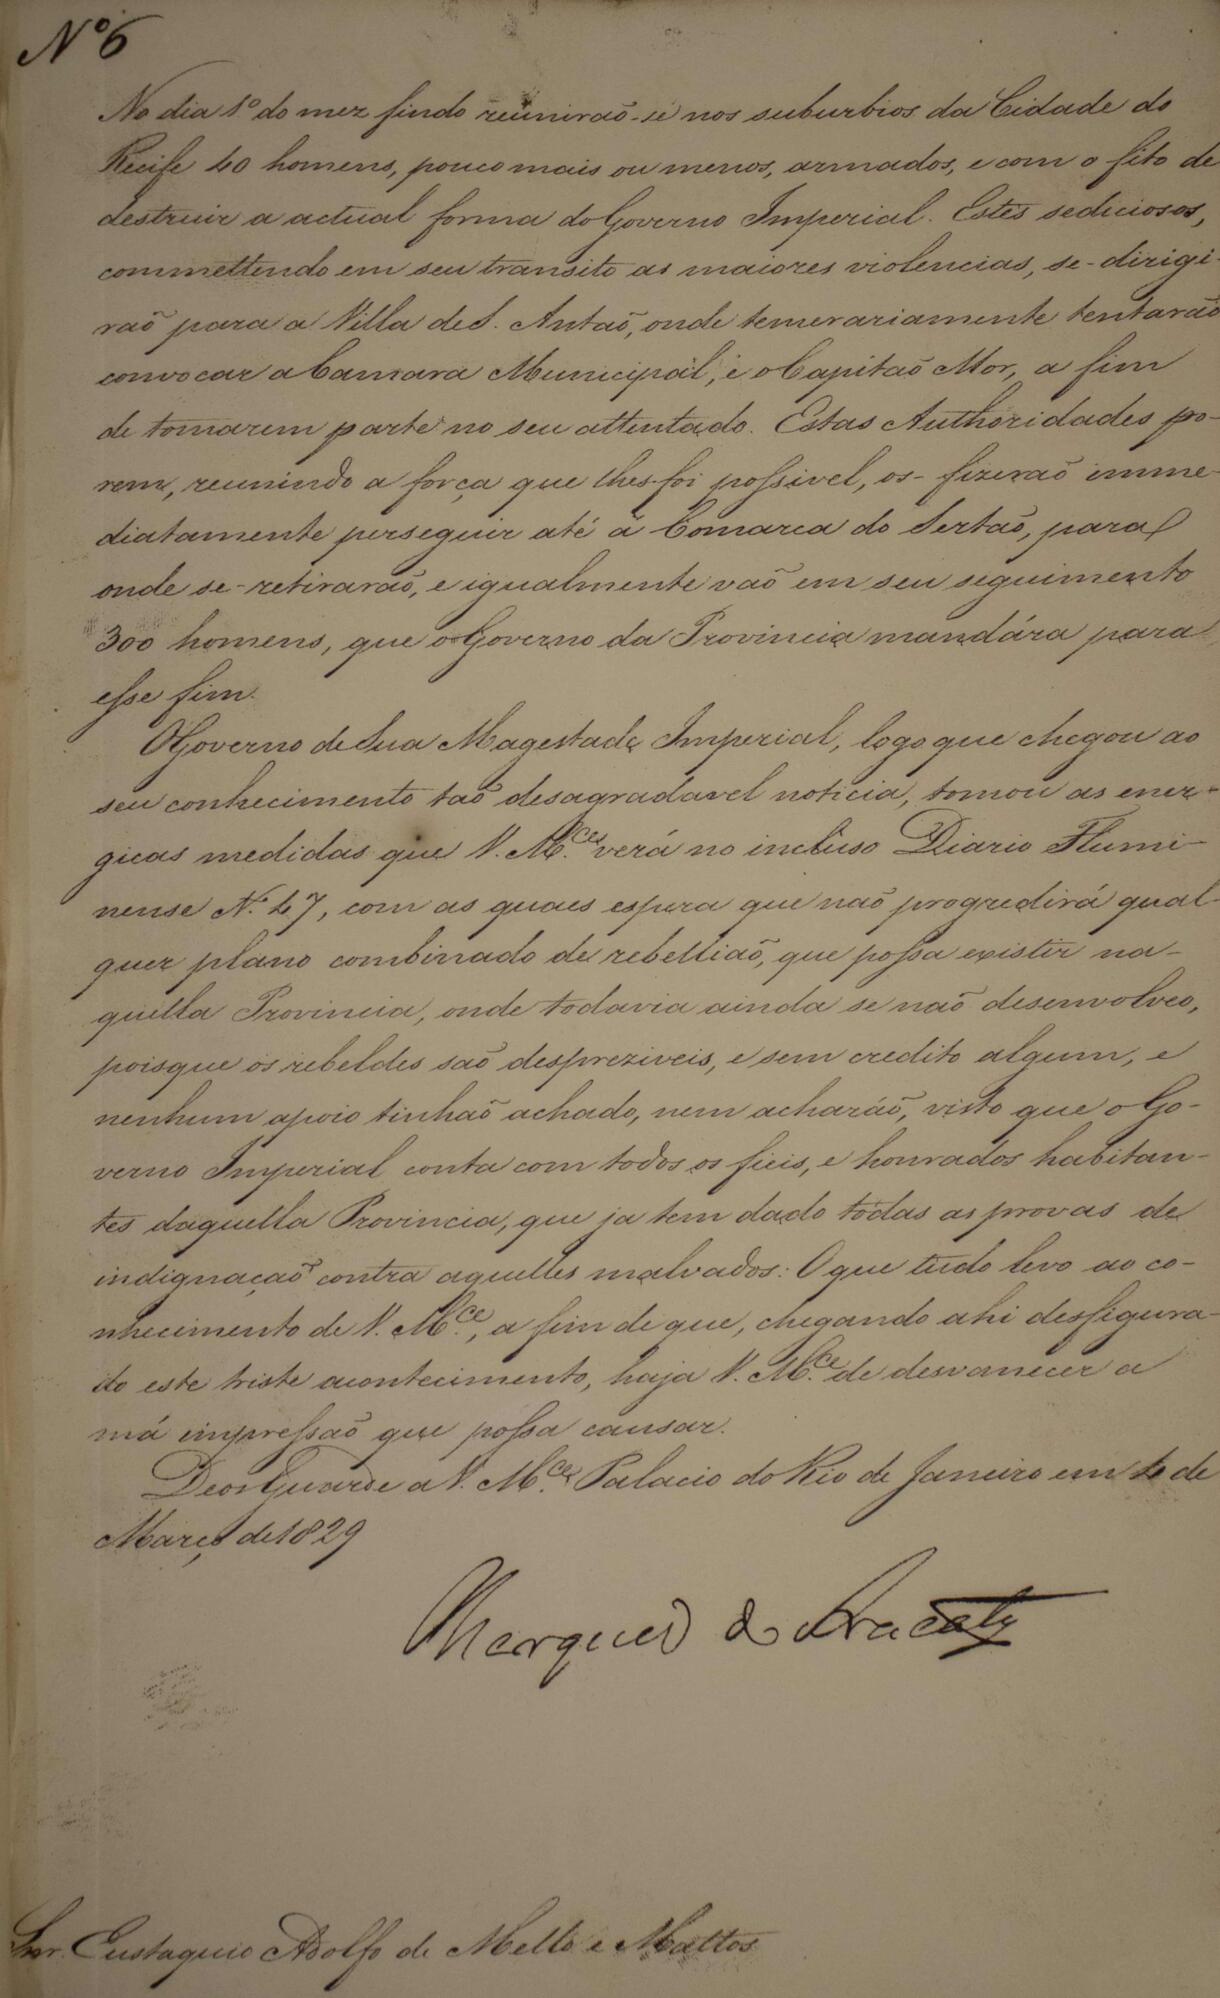 Nº 6
No dia 1º do mez findo reunirão-se nos suburbios da Cidade do
Recife 40 homens, pouco mais ou menos, armados, e com o fito de
destruir a actual forma do Governo Imperial. Estes sediciosos,
commettendo em seu transito as maiores violencias, se-dirigi-
raõ para a Villa de S. Antaõ, onde temerariamente tentaraõ
convocar a Camara Municipal, e o Capitaõ Mor, a fim
de tomarem parte no seu attentado. Estas Authoridades po-
rem, reunindo a força que lhes-foi possivel, os-fizeraõ imme-
diatamente perseguir até á Comarca do Sertaõ, para
onde se-retiraraõ, e igualmente vaõ em seu seguimento
300 homens, que o Governo da Provincia mandára para
esse fim.
O Governo de Sua Magestade Imperial, logo que chegou ao
seu conhecimento taõ desagradavel noticia, tomou as ener-
gicas medidas que V. M.ce verá no incluso Diario Flumi-
nense N. 47, com as quaes espera que naõ progredirá qual-
quer plano combinado de rebelliaõ, que possa existir na-
quella Provincia, onde todavia ainda se naõ desenvolveo,
poisque os rebeldes saõ despreziveis, e sem credito algum, e
nenhum apoio tinhaõ achado, nem acharáõ, visto que o Go-
verno Imperial conta com todos os fieis, e honrados habitan-
tes daquella Provincia, que ja tem dado todas as provas de
indignaçaõ contra aquelles malvados: O que tudo levo ao co-
nhecimento de V. M.ce, a fim de que, chegando ahi desfigura-
do este triste acontecimento, haja V. M.ce de desvanecer a
má impressaõ que possa causar.
Deos Guarde a V. M.ce Palacio do Rio de Janeiro em 4 de
Março de 1829
Marquez de Aracaty
Snr. Eustaquio Adolfo de Mello e Mattos